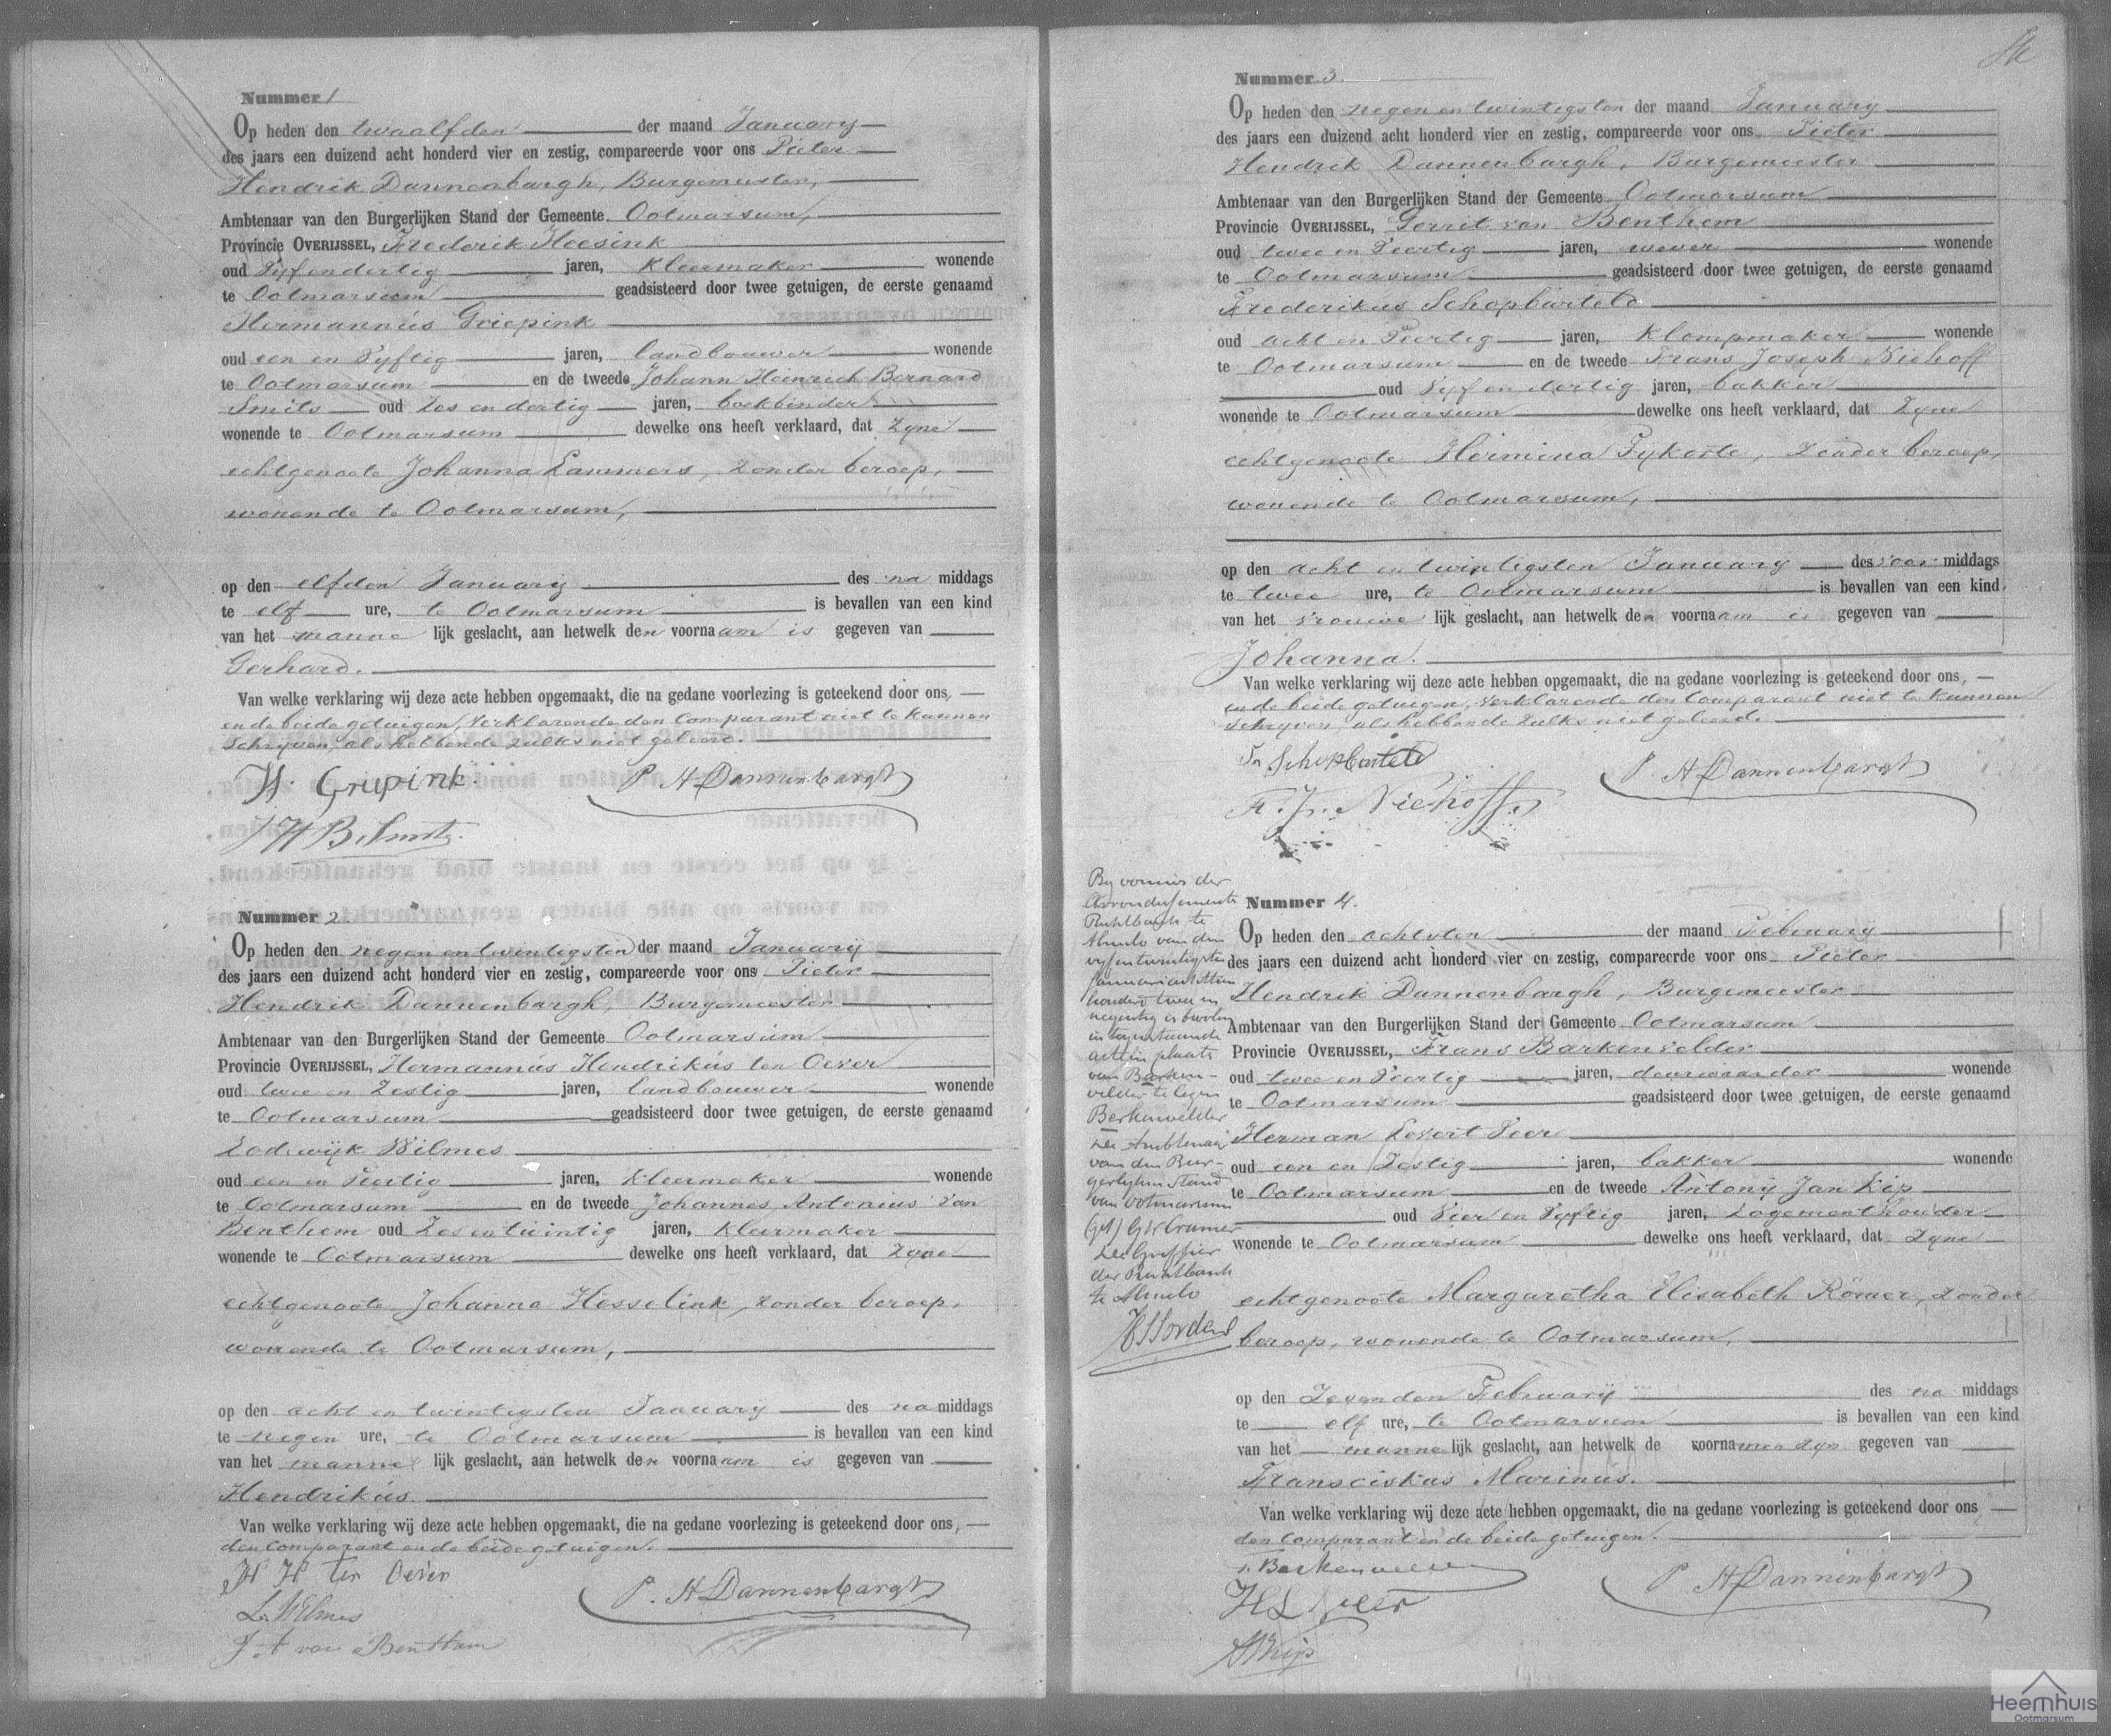 Nummer 1
Op heden den twaalfden der maand January
des jaars een duizend acht honderd vier en zestig, compareerde voor ons Pieter
Hendrik Dannenbargh, Burgemeester,
Ambtenaar van den Burgerlijken Stand der Gemeente Ootmarsum,
Provincie OVERIJSSEL, Frederik Heesink
oud Vyfendertig jaren, Kleermaker wonende
te Ootmarsum geadsisteerd door twee getuigen, de eerste genaamd
Hermannus Griepink
oud een en Vyftig jaren, landbouwer wonende
te Ootmarsum en de tweede Johann Heinrich Bernard
Smits oud Zes en dertig jaren, boekbinder
wonende te Ootmarsum dewelke ons heeft verklaard, dat Zyne
echtgenoote Johanna Lammers, zonder beroep,
wonende te Ootmarsum,
op den elfden January des na middags
te elf ure, te Ootmarsum is bevallen van een kind
van het manne lijk geslacht, aan hetwelk den voornaam is gegeven van
Gerhard.
Van welke verklaring wij deze acte hebben opgemaakt, die na gedane voorlezing is geteekend door ons,
en de beide getuigen, Verklarende den Comparant niet te Kunnen
Schryven, als hebbende zulks niet geleerd.
H. Griepink P. H Dannenbargh
J H B Smits
Nummer 2.
Op heden den negen en twintigsten der maand January
des jaars een duizend acht honderd vier en zestig, compareerde voor ons Pieter
Hendrik Dannenbargh, Burgemeester
Ambtenaar van den Burgerlijken Stand der Gemeente Ootmarsum
Provincie OVERIJSSEL, Hermannus Hendrikus ten Oever
oud twee en Zestig jaren, landbouwer wonende
te Ootmarsum geadsisteerd door twee getuigen, de eerste genaamd
Lodewijk Wilmes
oud een en Veertig jaren, Kleermaker wonende
te Ootmarsum en de tweede Johannes Antonius van
Benthem oud Zes en twintig jaren, Kleermaker
wonende te Ootmarsum dewelke ons heeft verklaard, dat Zyne
echtgenoote Johanna Hesselink, zonder beroep,
wonende te Ootmarsum,
op den acht en twintigsten January des na middags
te negen ure, te Ootmarsum is bevallen van een kind
van het manne lijk geslacht, aan hetwelk den voornaam is gegeven van
Hendrikus.
Van welke verklaring wij deze acte hebben opgemaakt, die na gedane voorlezing is geteekend door ons,
den Comparant en de beide getuigen.
H H ten Oever
P. H Dannenbargh
L. Wilmes
J A van Benthem
Nummer 3.
Op heden den negen en twintigsten der maand January
des jaars een duizend acht honderd vier en zestig, compareerde voor ons Pieter
Hendrik Dannenbargh, Burgemeester
Ambtenaar van den Burgerlijken Stand der Gemeente Ootmarsum
Provincie OVERIJSSEL, Gerrit van Benthem
oud twee en Veertig jaren, wever wonende
te Ootmarsum geadsisteerd door twee getuigen, de eerste genaamd
Frederikus Schopbarteld
oud acht en Veertig jaren, Klompmaker wonende
te Ootmarsum en de tweede Frans Joseph Niehoff
oud Vyf en dertig jaren, bakker
wonende te Ootmarsum dewelke ons heeft verklaard, dat Zyne
echtgenoote Hermina Pykotte, Zonder beroep,
wonende te Ootmarsum,
op den acht en twintigsten January des voor middags
te twee ure, te Ootmarsum is bevallen van een kind
van het vrouwe lijk geslacht, aan hetwelk den voornaam is gegeven van
Johanna.
Van welke verklaring wij deze acte hebben opgemaakt, die na gedane voorlezing is geteekend door ons,
en de beide getuigen, Verklarende den Comparant niet te Kunnen
Schryven, als hebbende Zulks niet geleerd
Fr Schopbarteld
P. H Dannenbargh
F. J. Niehoff
By vonnis der
Arrondissements
Rechtbank te
Almelo van den
vyfentwintigsten
Januari achttien
honderd twee en
negentig is bevolen
in tegenstaande
acte in plaats
van Barken-
velder te lezen
Berkenvelder
De Ambtenaar
van den Bur-
gerlyken Stand
van Ootmarsum
(get) G W Cramer
De Griffier
der Rechtbank
te Almelo
Nummer 4.
Op heden den achtsten der maand February
des jaars een duizend acht honderd vier en zestig, compareerde voor ons Pieter
Hendrik Dannenbargh, Burgemeester
Ambtenaar van den Burgerlijken Stand der Gemeente Ootmarsum
Provincie OVERIJSSEL, Frans Barkenvelder
oud twee en Veertig jaren, deurwaarder wonende
te Ootmarsum geadsisteerd door twee getuigen, de eerste genaamd
Herman Levert Veer
oud een en Zestig jaren, bakker wonende
te Ootmarsum en de tweede Antony Jan Kip
oud Vier en Vyftig jaren, Logementhouder
wonende te Ootmarsum dewelke ons heeft verklaard, dat Zyne
echtgenoote Margaretha Elisabeth Römer, zonder
beroep, wonende te Ootmarsum,
op den Zevenden February des na middags
te elf ure, te Ootmarsum is bevallen van een kind
van het manne lijk geslacht, aan hetwelk de voornamen zyn gegeven van
Franciskus Marinus.
Van welke verklaring wij deze acte hebben opgemaakt, die na gedane voorlezing is geteekend door ons
den Comparant en de beide getuigen.
P. H Dannenbargh
H L Veer
A J Kip
Heemhuis
Ootmarsum